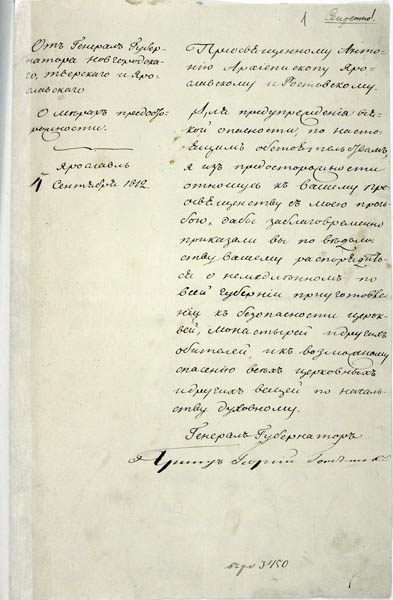 1 Секретно!
Отъ Генералъ Губер-
натора новгородска-
го, тверскаго и Яро-
славскаго
О мѣрахъ предосто-
рожности.
Ярославль
Сентября 1812.
Преосвященному Анто-
нію Архіепископу Яро-
славскому и Ростовскому.
Для предупрежденія вся-
кой опасности, по насто-
ящимъ обстоятельствамъ,
я изъ предосторожности
отношусь къ Вашему пре-
освященству съ моею прось-
бою, дабы заблаговременно
приказали вы по вѣдом-
ству вашему распорядить-
ся о немедленномъ по
всей Губерніи приуготовле-
ніи къ безопасности церк-
вей, монастырей и другихъ
обителей, и къ возможному
спасенію всѣхъ церковныхъ
и другихъ вещей по началь-
ству духовному.
Генералъ Губернаторъ
Принцъ Георгій
3450